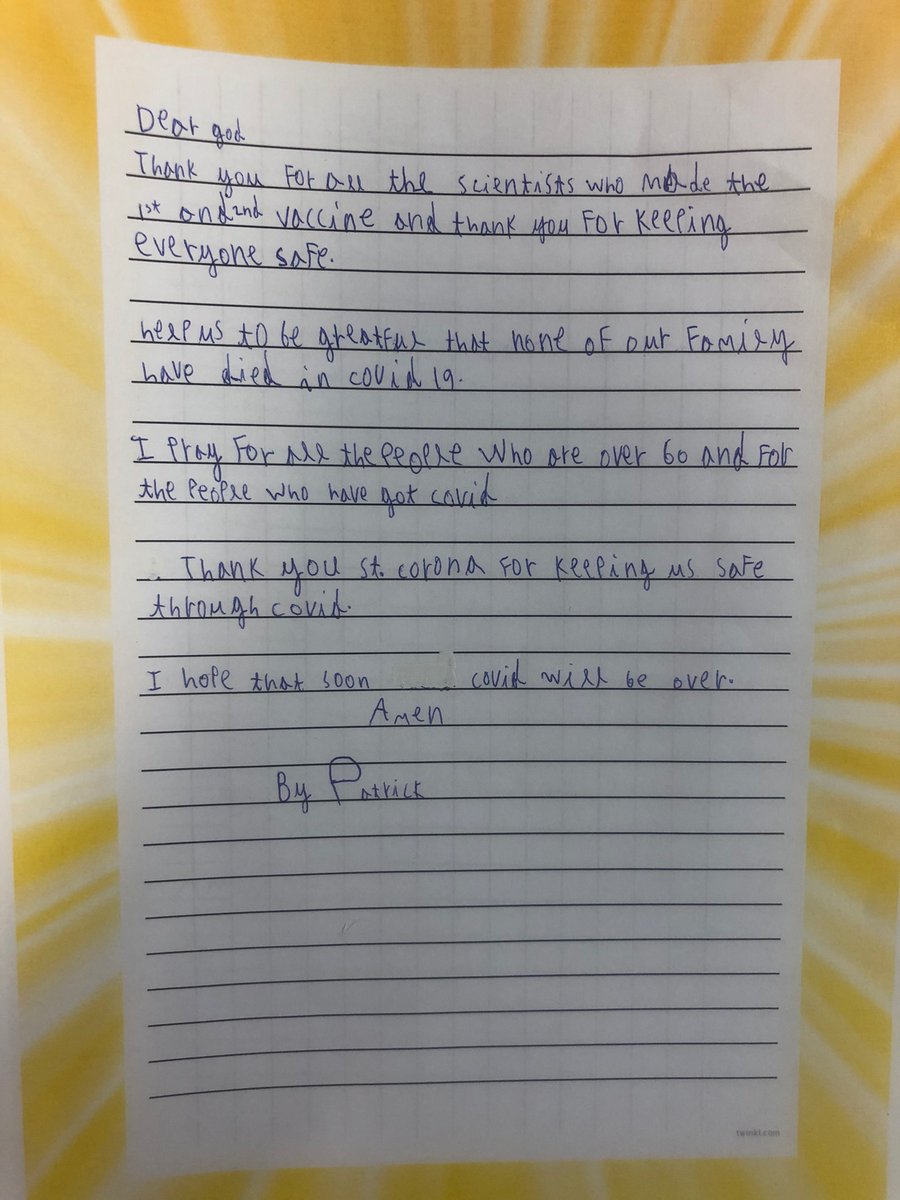 Dear god
Thank you For all the scientists who made the
1st and 2nd vaccine and thank you For Keeping
everyone safe.
help us to be greatful that none of our Family
have died in covid 19.
I Pray For all the People who are over 60 and For
the People who have got covid
Thank you st. corona For Keeping us safe
through covid.
I hope that soon covid will be over.
Amen
By Patrick
twinkl.com